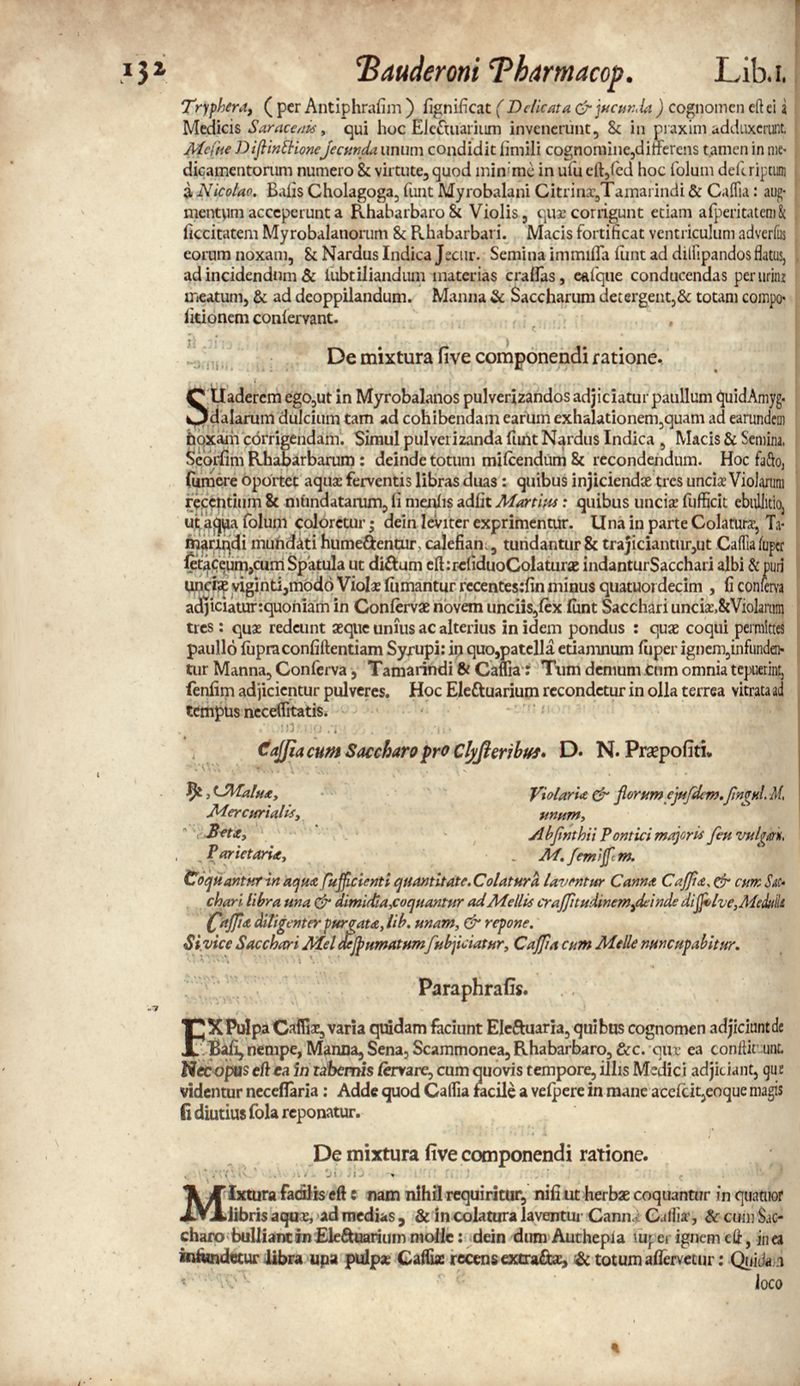 132 Bauderoni Pharmacop. Lib.1.
Tryphera, (per Antiphrasim) significat (Delicata & jucunda) cognomen est ei à
Medicis Saracenis, qui hoc Electuarium invenerunt, & in praxim adduxerunt.
Mesue Distinctione secunda unum condidit simili cognomine, differens tamen in me-
dicamentorum numero & virtute, quod minimè in usu est, sed hoc solum descriptum
à Nicolao. Basis Cholagoga, sunt Myrobalani Citrinæ, Tamarindi & Cassia: aug-
mentum acceperunt a Rhabarbaro & Violis, quæ corrigunt etiam asperitatem &
siccitatem Myrobalanorum & Rhabarbari. Macis fortificat ventriculum adversus
eorum noxam, & Nardus Indica Jecur. Semina immissa sunt ad dissipandos flatus,
ad incidendum & subtiliandum materias crassas, easque conducendas per urinæ
meatum, & ad deoppilandum. Manna & Saccharum detergent, & totam compo-
sitionem conservant.
De mixtura sive componendi ratione.
SUaderem ego, ut in Myrobalanos pulverizandos adjiciatur paullum quid Amyg-
dalarum dulcium tam ad cohibendam earum exhalationem, quam ad earundem
noxam corrigendam. Simul pulverizanda sunt Nardus Indica, Macis & Semina.
Seorsim Rhabarbarum: deinde totum miscendum & recondendum. Hoc facto,
sumere oportet aquæ ferventis libras duas: quibus injiciendæ tres unciæ Violarum
recentium & mundatarum, si mensis adsit Martius: quibus unciæ sufficit ebullitio,
ut aqua solum coloretur; dein leviter exprimentur. Una in parte Colaturæ, Ta-
marindi mundati humectentur, calefian., tundantur & trajiciantur, ut Cassia super
setaceum, cum Spatula ut dictum est: residuo Colaturæ indantur Sacchari albi & puri
unciæ viginti, modò Violæ sumantur recentes: sin minus quatuordecim, si conserva
adjiciatur: quoniam in Conservæ novem unciis, sex sunt Sacchari unciæ, & Violarum
tres: quæ redeunt æque unius ac alterius in idem pondus: quæ coqui permittes
paullò supra consistentiam Syrupi: in quo, patellâ etiamnum super ignem, infunden-
tur Manna, Conserva, Tamarindi & Cassia: Tum demum cum omnia tepuerint,
sensim adjicientur pulveres. Hoc Electuarium recondetur in olla terrea vitrata ad
tempus necessitatis.
Cassia cum Saccharo pro Clysteribus. D. N. Præpositi.
℞, Malvæ,
Mercurialis,
Betæ,
Parietariæ,
Violariæ & florum ejusdem. singul. M.
unum,
Absinthii Pontici majoris seu vulgaris.
M. semissem.
Coquantur in aquæ sufficienti quantitate. Colaturâ laventur Cannæ Cassiæ, & cum Sac-
chari libra una & dimidia, coquantur ad Mellis crassitudinem, deinde dissolve, Medullæ
Cassiæ diligenter purgatæ, lib. unam, & repone.
Si vice Sacchari Mel despumatum subjiciatur, Cassia cum Melle nuncupabitur.
Paraphrasis.
EX Pulpa Cassiæ, varia quidam faciunt Electuaria, quibus cognomen adjiciunt de
Basi, nempe, Manna, Sena, Scammonea, Rhabarbaro, &c. quæ ea constituunt.
Nec opus est ea in tabernis servare, cum quovis tempore, illis Medici adjiciant, quæ
videntur necessaria: Adde quod Cassia facilè a vespere in mane acescit, eoque magis
si diutius sola reponatur.
De mixtura sive componendi ratione.
MIxtura facilis est: nam nihil requiritur, nisi ut herbæ coquantur in quatuor
libris aquæ, ad medias, & in colatura laventur Cannæ Cassiæ, & cum Sac-
charo bulliant in Electuarium molle: dein dum Authepsa super ignem est, in ea
infundetur libra una pulpæ Cassiæ recens extractæ, & totum asservetur: Quidam
loco